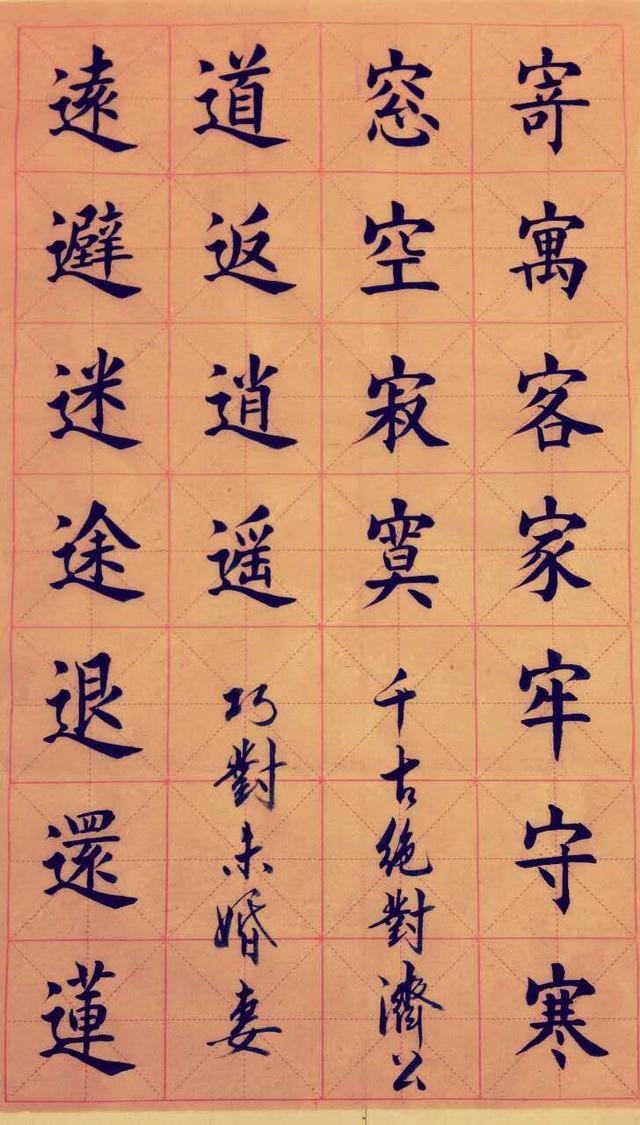 寄寓客家牢守寒
窓空寂寞
遠避迷途退還蓮
道返逍遥
千古絶對濟公
巧對未婚妻